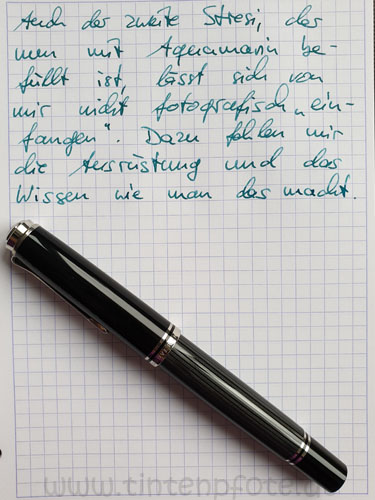 Auch der zweite Stresi, der
nun mit Aquamarin be-
füllt ist, lässt sich von
mir nicht fotografisch „ein-
fangen". Dazu fehlen mir
die Ausrüstung und das
Wissen wie man das macht.
www.tintenpfote